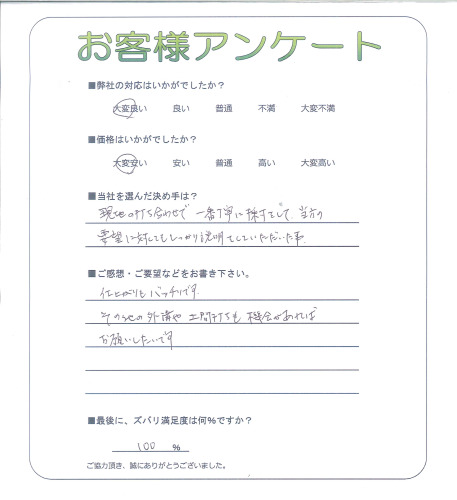 お客様アンケート
■弊社の対応はいかがでしたか？
大変良い　良い　普通　不満　大変不満
■価格はいかがでしたか？
大変安い　安い　普通　高い　大変高い
■当社を選んだ決め手は？
現地の打ち合わせで一番丁寧に採寸をして、当方の
要望に対してもしっかり説明をしていただいた事
■ご感想・ご要望などをお書き下さい。
仕上がりもバッチリです
その他の外構や土間打ちも機会があれば
お願いしたいです
■最後に、ズバリ満足度は何%ですか？
100 %
ご協力頂き、誠にありがとうございました。